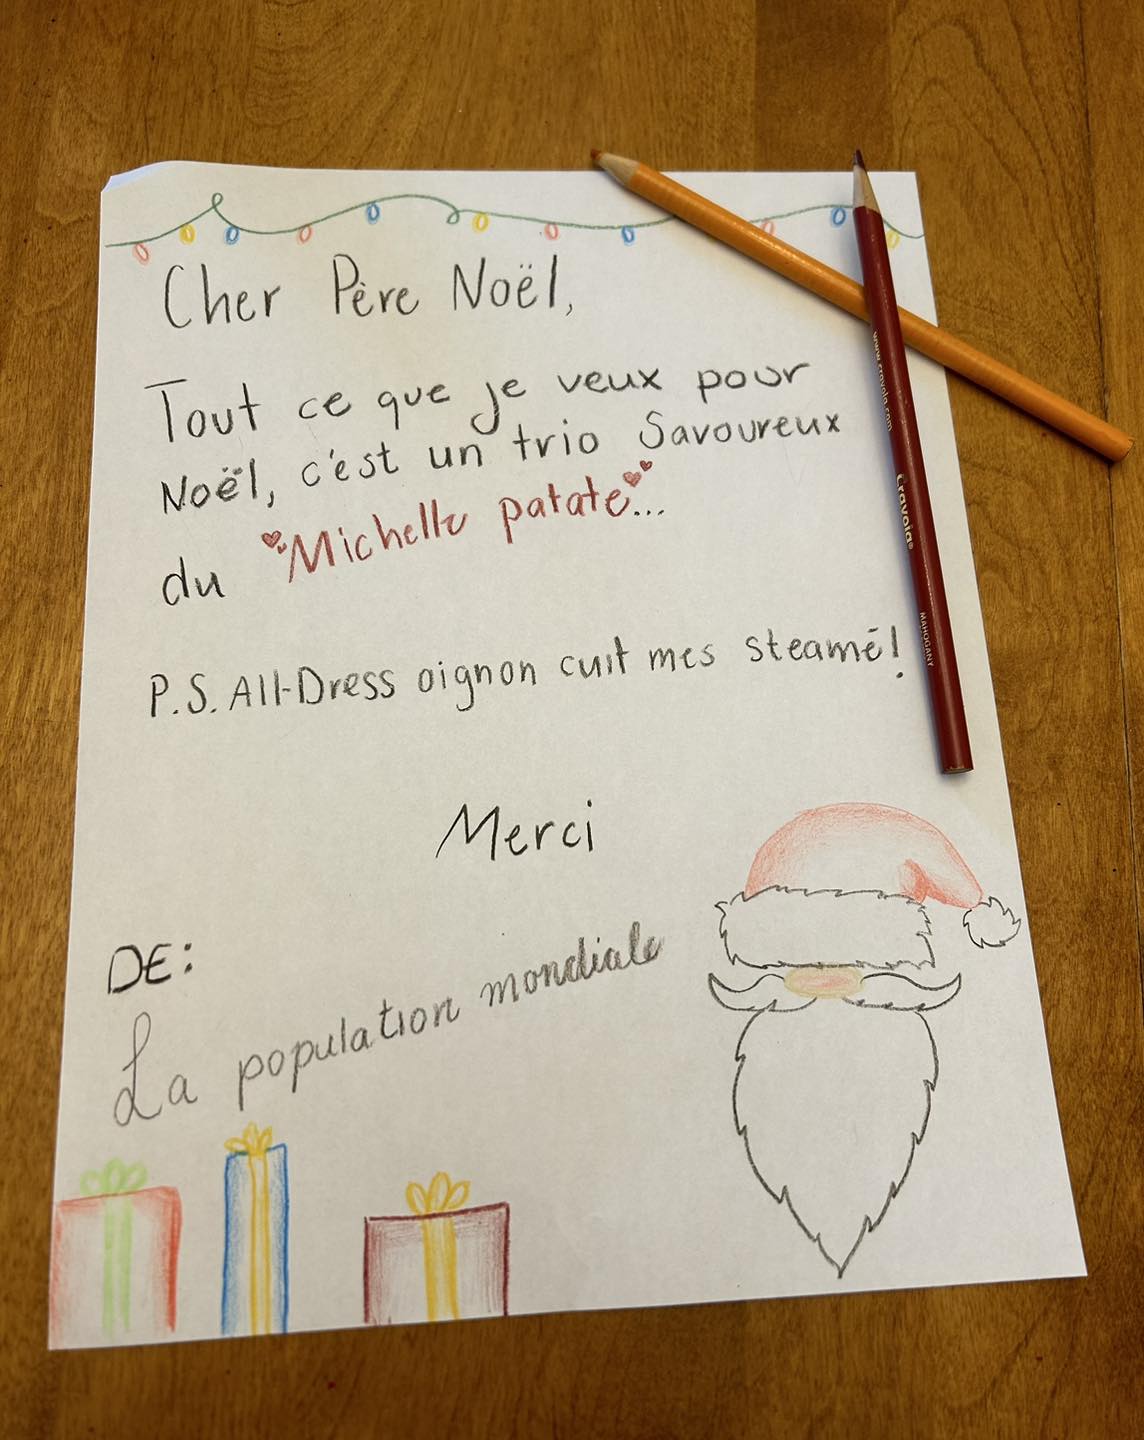 Cher Père Noël,
Tout ce que je veux pour
Noël, c'est un trio Savoureux
du Michelle patate...
P.S. All-Dress oignon cuit mes steamé!
Merci
DE:
La population mondiale
www.crayola.com
Crayola®
MAHOGANY